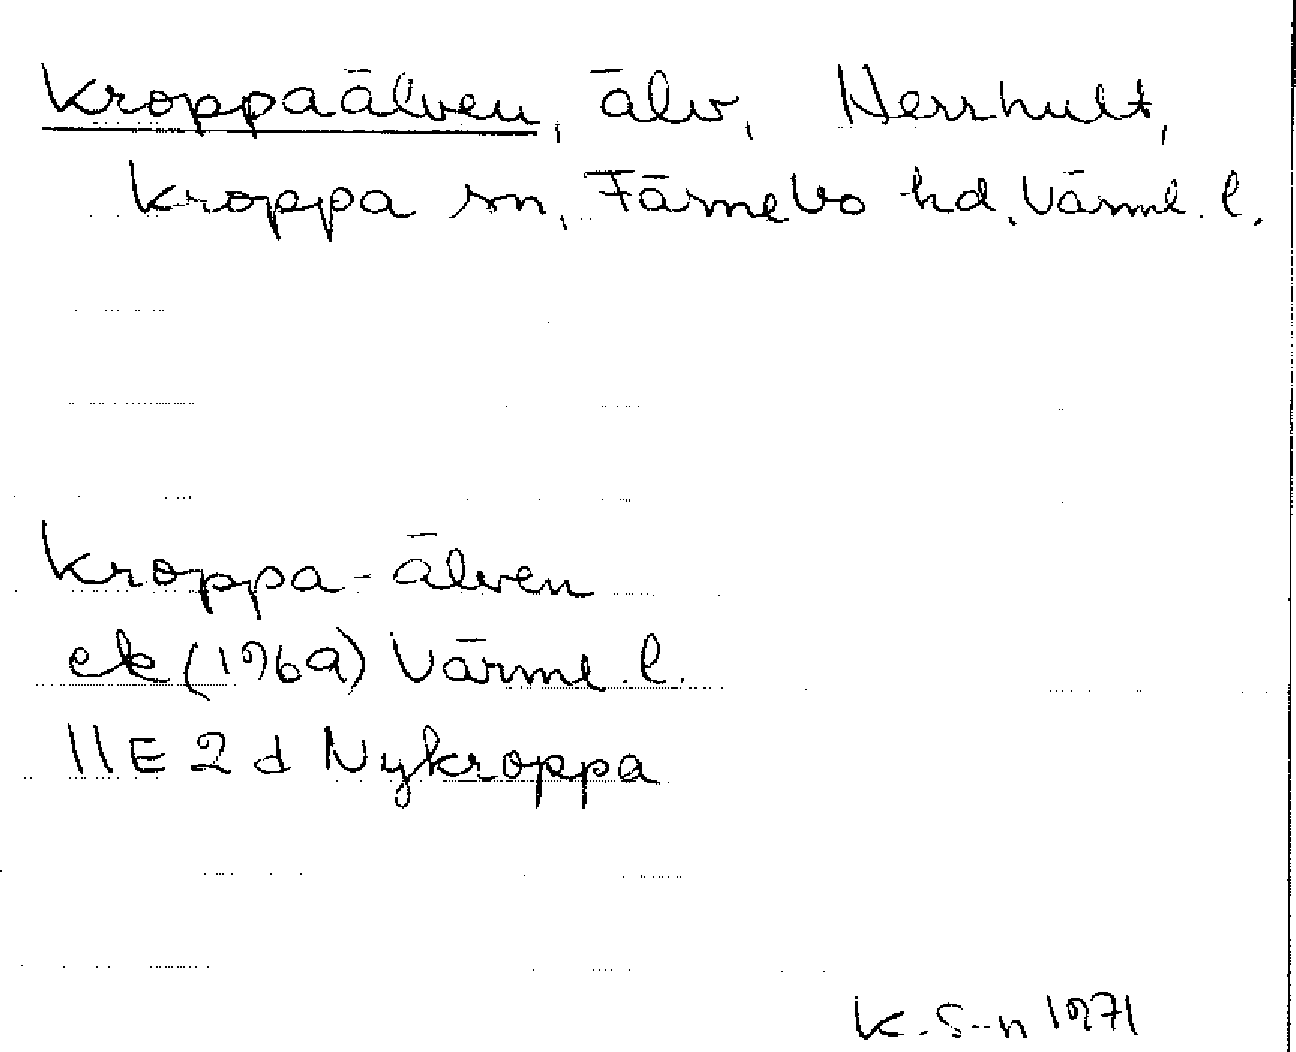 Kroppaälven, älv, Nerrhult,
Kroppa sn, Färnebo hd, Värml. l.
Kroppa-älven
ek (1969) Värml. l.
11E 2d Nykroppa
K. S-n 1971